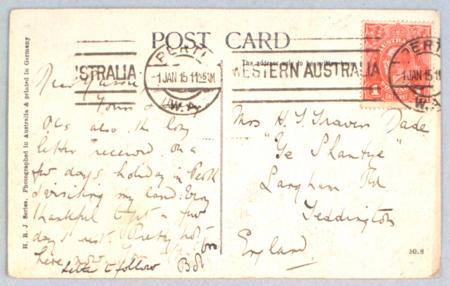 POST CARD
The address only to be written
H. B. J. Series. Photographed in Australia & printed in Germany
STRALIA
PERTH
1 JAN 15 11
W.A.
WESTERN AUSTRALIA
AUSTRALIA
PERTH
1 JAN 15 11
W.A.
Dear
Yours
also the long
letter received. On a
few days holiday in Perth
& visiting my land. Very
thankful to get a few
days rest. Pretty hot
here now
Letter to follow
Mrs H. S. Dade
"Ye Shantye"
Langham Rd
Teddington
England.
50.8